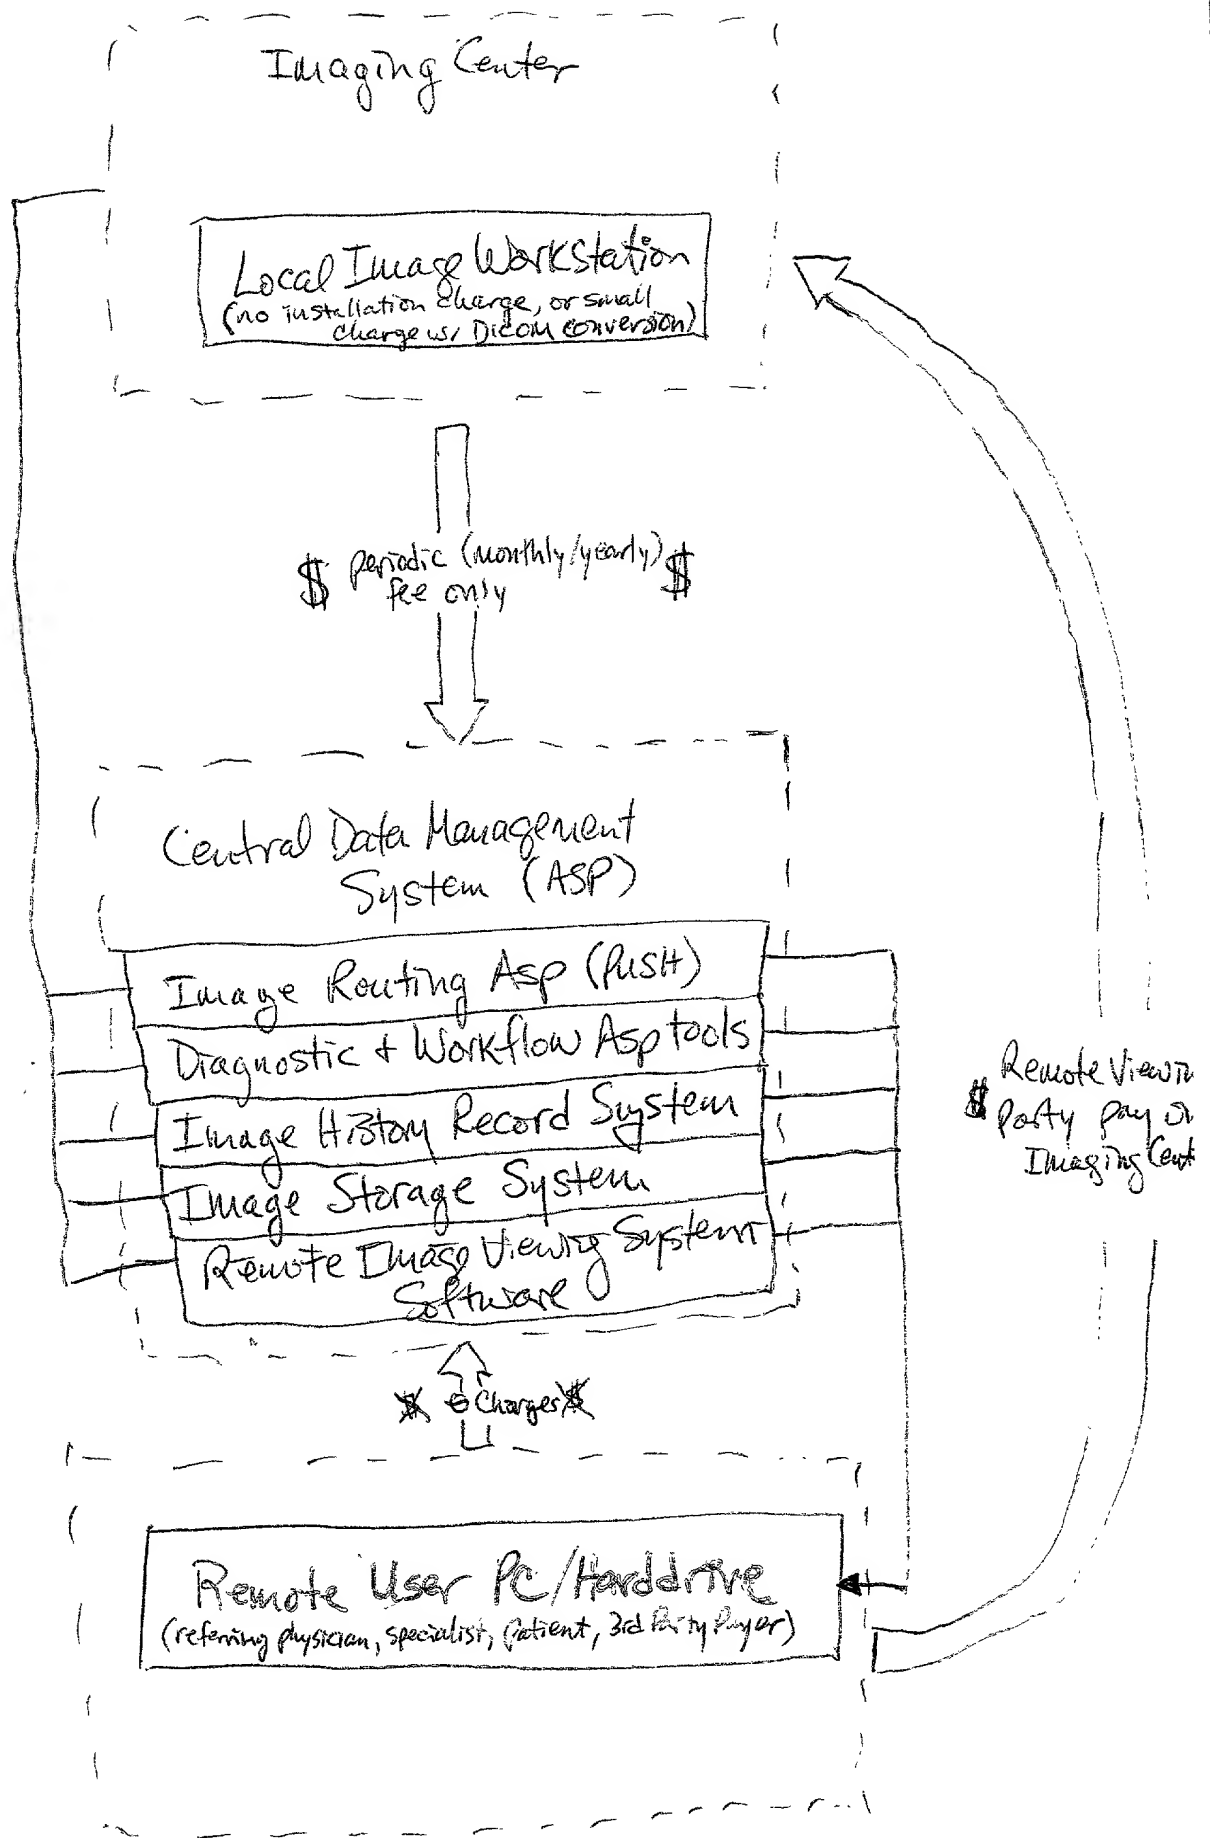 Imaging Center
Local Image Workstation
(no installation charge, or small
charge w/ Dicom conversion)
$ periodic (monthly/yearly) $
fee only
Central Data Management
System (ASP)
Image Routing Asp (PUSH)
Diagnostic + Workflow Asp tools
Image History Record System
Image Storage System
Remote Image Viewing System
Software
Remote Viewin
$ Party pay
Imaging Cent
$ Charges $
Remote User PC/Harddrive
(referring physician, specialist, patient, 3rd Party Payer)